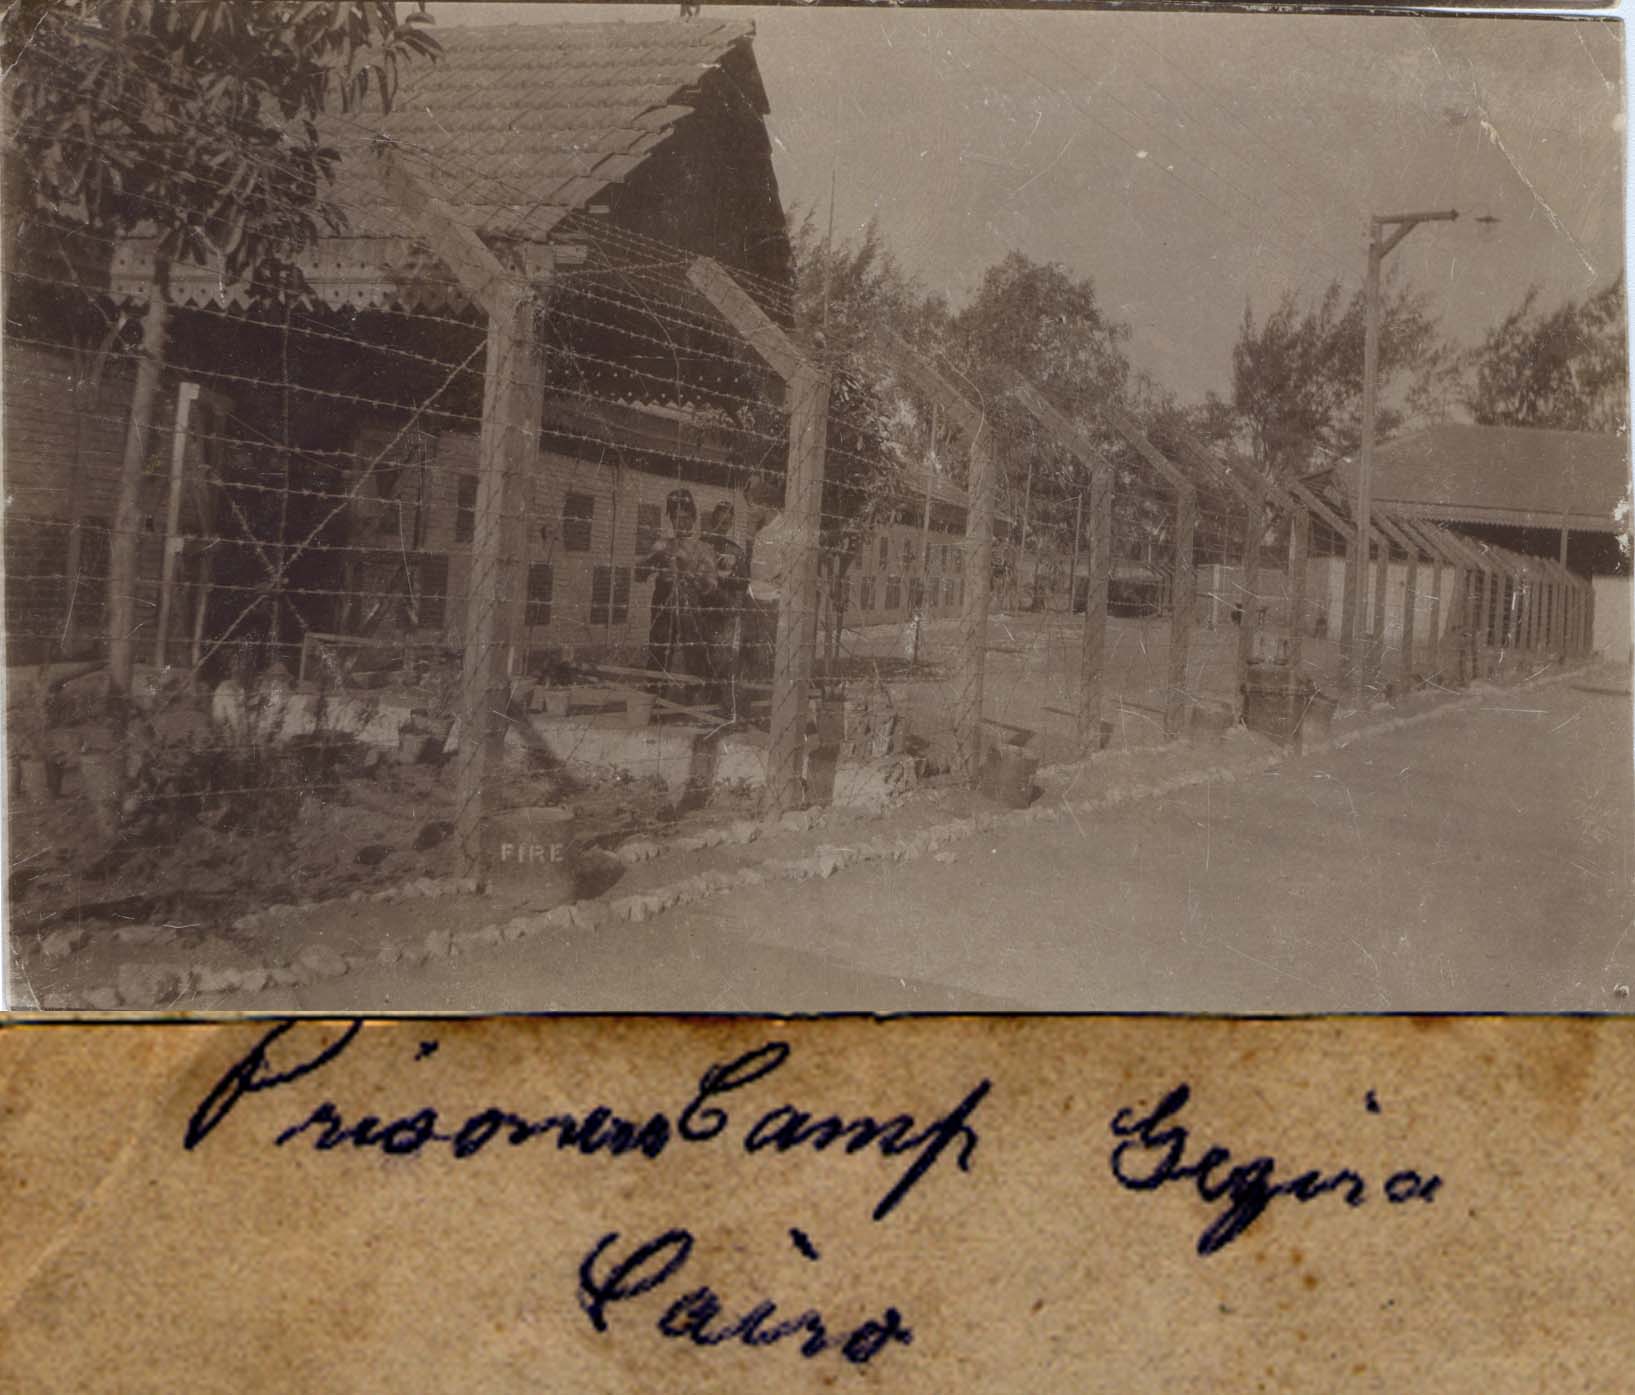 FIRE
Prisoners Camp Gezira
Cairo